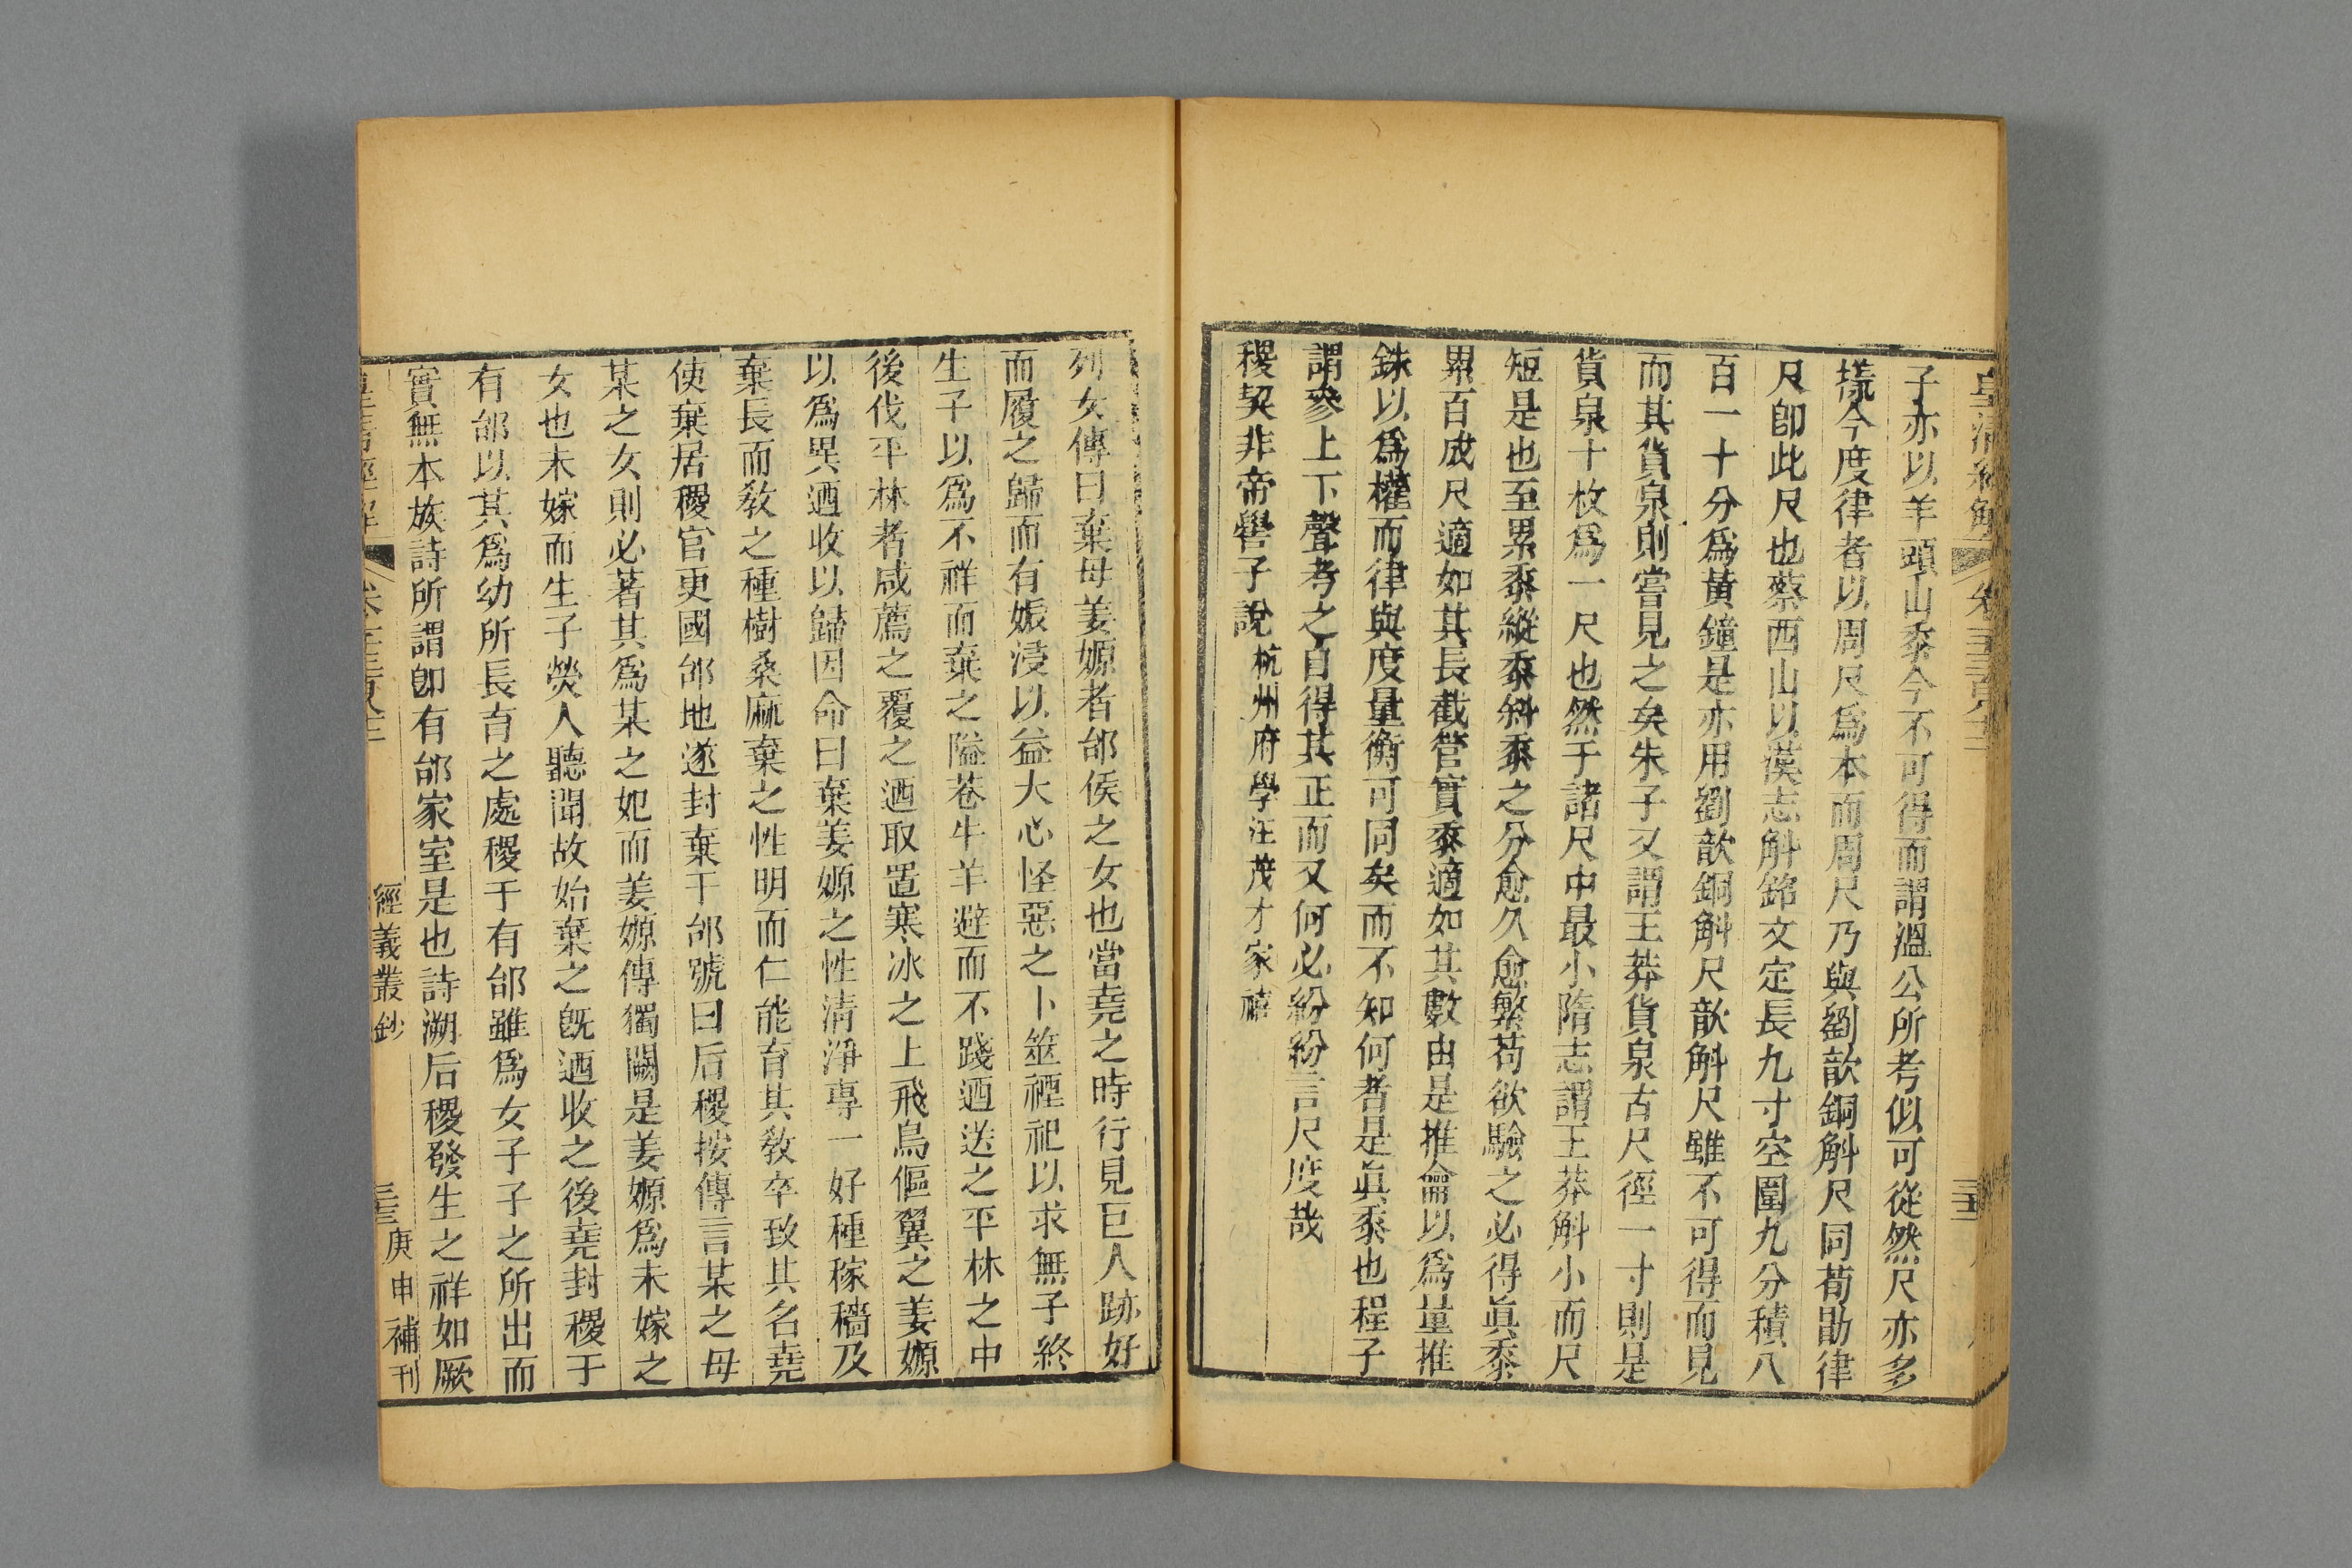 皇清經解 卷
子亦以羊頭山黍今不可得而謂溫公所考似可從然尺亦多
㨪今度律者以周尺爲本而周尺乃與劉歆銅斛尺同荀勖律
尺卽此尺也蔡西山以漢志斛銘文定長九寸空圍九分積八
百一十分爲黃鐘是亦用劉歆銅斛尺歆斛尺雖不可得而見
而其貨泉則嘗見之矣朱子又謂王莽貨泉古尺徑一寸則是
貨泉十枚爲一尺也然于諸尺中最小隋志謂王莽斛小而尺
短是也至累黍縱黍斜黍之分愈久愈繁苟欲驗之必得眞黍
累百成尺適如其長截管實黍適如其數由是推龠以爲量推
銖以爲權而律與度量衡可同矣而不知何者是眞黍也程子
謂參上下聲考之自得其正而又何必紛紛言尺度哉
稷契非帝嚳子說 杭州府學汪茂才家禧
列女傳曰棄母姜嫄者邰侯之女也當堯之時行見巨人跡好
而履之歸而有娠浸以益大心怪惡之卜筮禋祀以求無子終
生子以爲不祥而棄之隘巷牛羊避而不踐迺送之平林之中
後伐平林者咸薦之覆之迺取置寒冰之上飛鳥傴翼之姜嫄
以爲異迺收以歸因命曰棄姜嫄之性淸淨專一好種稼穡及
棄長而敎之種樹桑麻棄之性明而仁能育其敎卒致其名堯
使棄居稷官更國邰地遂封棄于邰號曰后稷按傳言某之母
某之女則必著其爲某之妃而姜嫄傳獨闕是姜嫄爲未嫁之
女也未嫁而生子熒人聽聞故始棄之旣迺收之後堯封稷于
有邰以其爲幼所長育之處稷于有邰雖爲女子子之所出而
實無本族詩所謂卽有邰家室是也詩溯后稷發生之祥如厥
經義叢鈔
庚申補刊